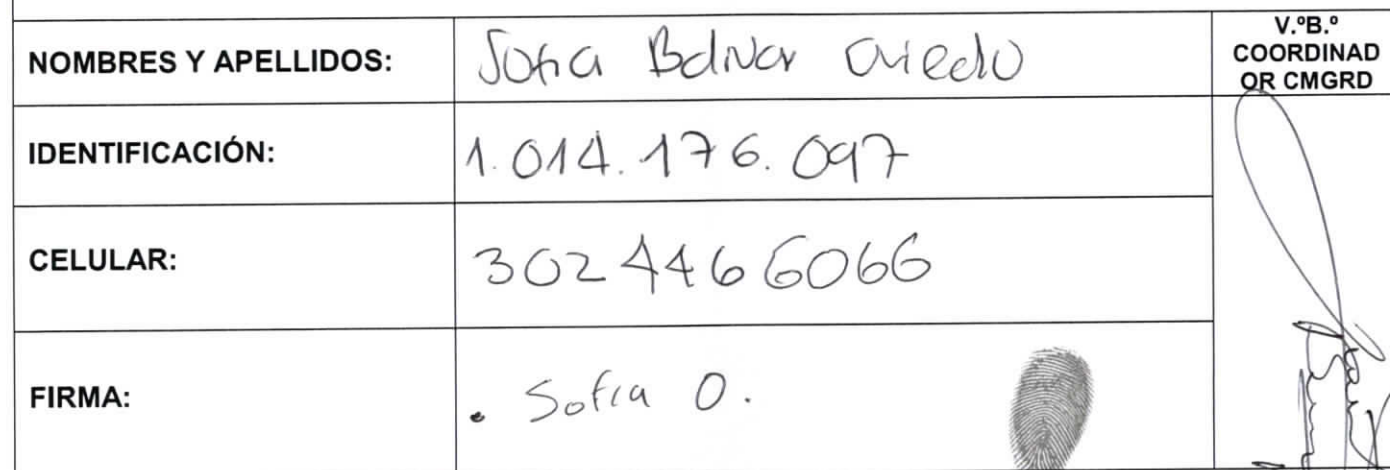 NOMBRES Y APELLIDOS: Sofia Bolivar Oviedo
V.ºB.º
COORDINAD
OR CMGRD
IDENTIFICACIÓN: 1.014.176.097
CELULAR: 3024466066
FIRMA: . Sofia O.